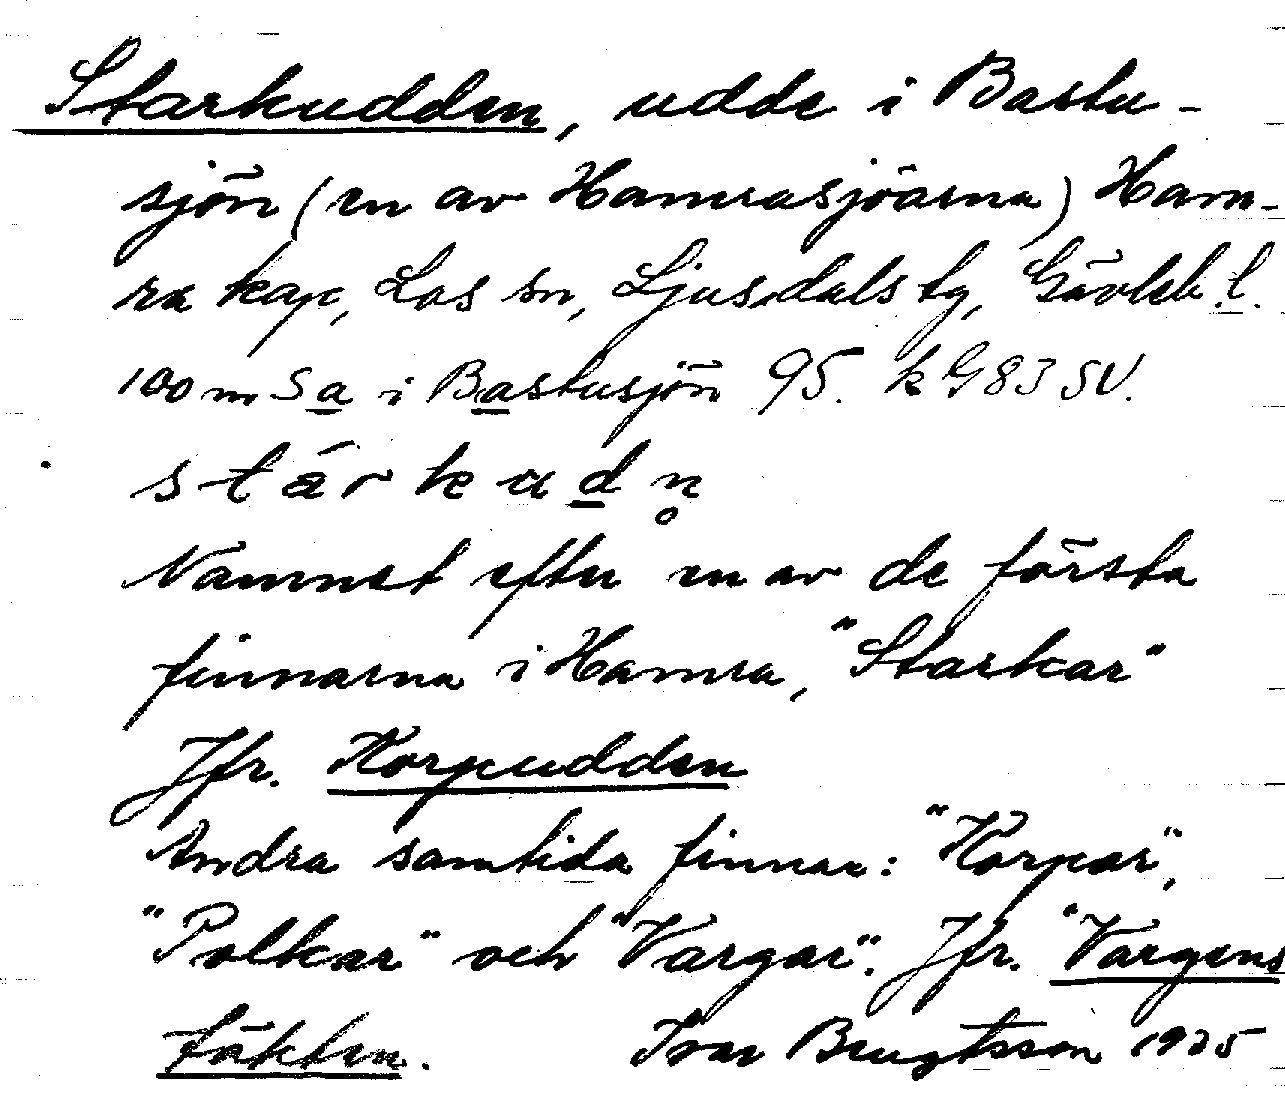 Starkudden, udde i Bastu-
sjön (en av Hamrasjöarna) Ham-
ra kap, Los sn, Ljusdals tg, Gävleb. l.
100 m S a i Bastusjön 95. k G 83 SV.
stárkudn̥
Namnet efter en av de första
finnarna i Hamra, "Starkar"
Jfr. Korpudden
Andra samtida finnar: "Korpar",
"Polkar" och "Vargar". Jfr. "Vargens
täkten. Ivar Bengtsson 1925